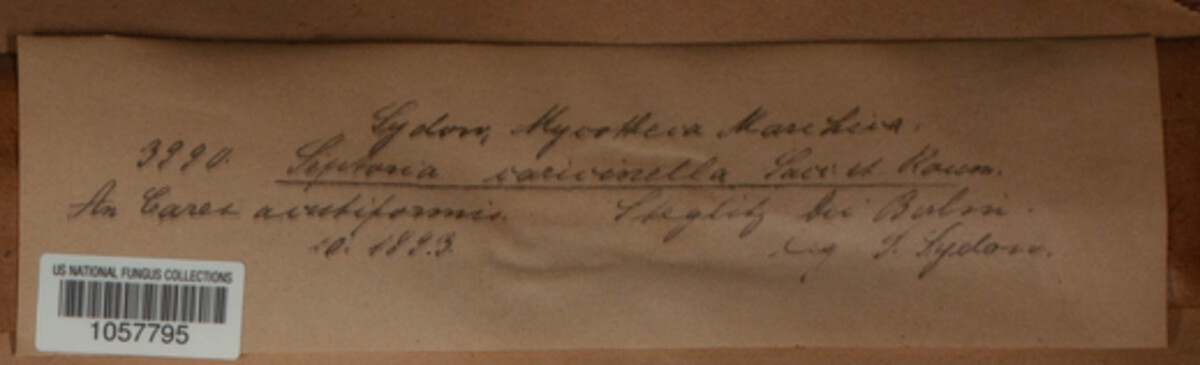 Sydow, Mycotheca Marchica.
3990. Septoria caricinella Sacc. et Roum.
An Carex acutiformis. Steglitz bei Berlin.
10. 1893. leg. P. Sydow.
US NATIONAL FUNGUS COLLECTIONS
1057795